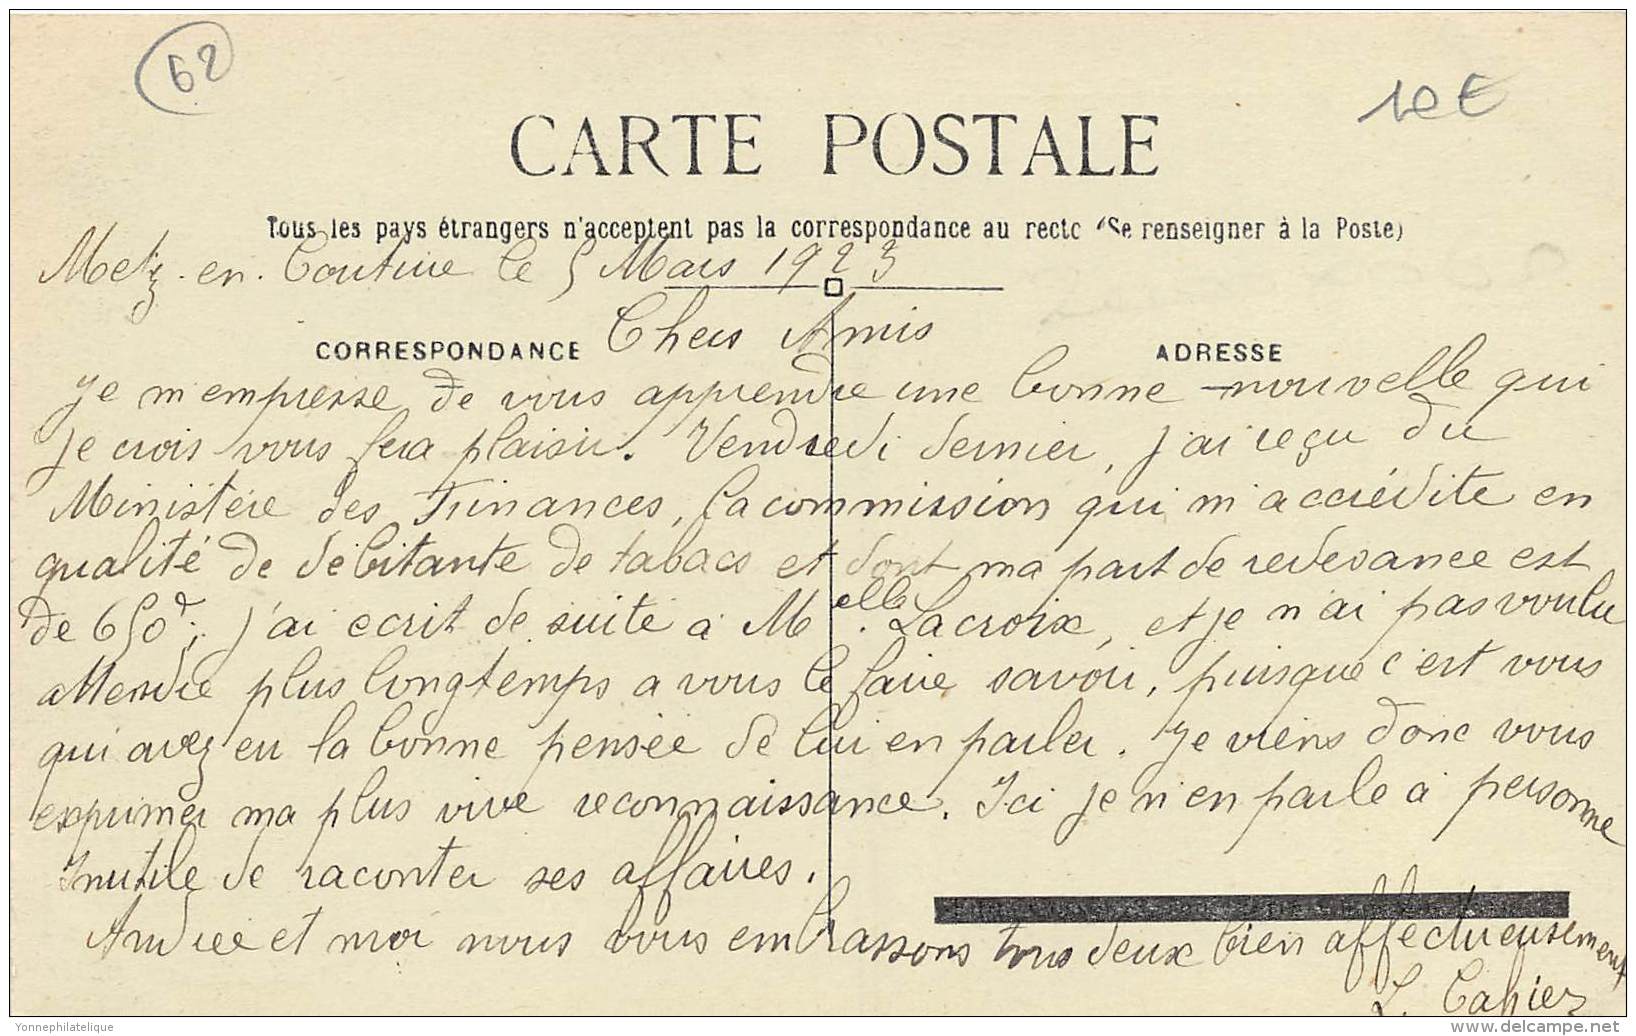 62
10€
CARTE POSTALE
Tous les pays étrangers n'acceptent pas la correspondance au recto (Se renseigner à la Poste)
Metz-en-Couture le 5 Mars 1923
CORRESPONDANCE
Chers Amis
ADRESSE
Je m'empresse de vous apprendre une bonne nouvelle qui
je crois vous fera plaisir. Vendredi dernier, j'ai reçu du
Ministère des Finances, la commission qui m'accrédite en
qualité de débitante de tabacs et dont ma part de redevance est
de 650d; j'ai ecrit de suite à Melle. Lacroix, et je n'ai pas voulu
attendre plus longtemps a vous le faire savoir, puisque c'est vous
qui avez eu la bonne pensée de lui en parler. Je viens donc vous
exprimer ma plus vive reconnaissance. Ici je n'en parle à personne
Inutile de raconter ses affaires.
Andrée et moi nous vous embrassons tous deux bien affectueusement
L. Capiez
Yonnephilatelique
www.delcampe.net